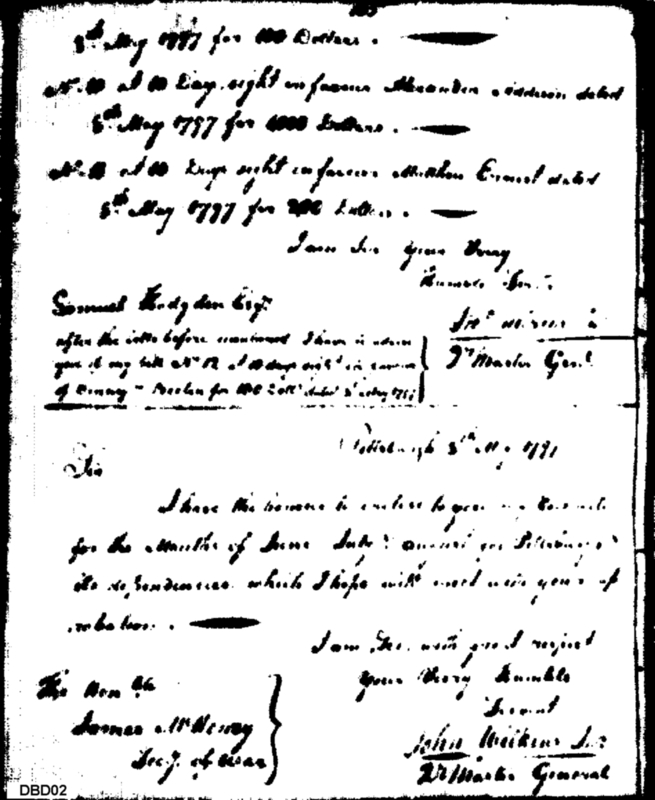 8th May 1797 for 100 Dollars.
No. 10 at 10 Days sight in favour Alexander Addison dated
8th May 1797 for 1000 Dollars.
No. 11 at 10 Days sight in favour Matthew Ernest dated
8th May 1797 for 200 Dollars.
I am Sir your Very
Humble Servt
Samuel Hodgdon Esqr.
Jno Wilkins Jr
Qr Master Genl
after the bills before mentioned I have to advise
you of my bill No 12 at 10 days sight in favour
of Denny & for 100 Dolls dated 8 May 1797
Pittsburgh 8th May 1797
Sir
I have the honour to enclose to you my
for the Months of June July & August for Pittsburgh &
its dependencies which I hope will meet with your ap
robation.
I am Sir with great respect
Your Very Humble
Servant
The Honble
James McHenry
Secy. of War
John Wilkins Jr
Qr Master General
DBD02